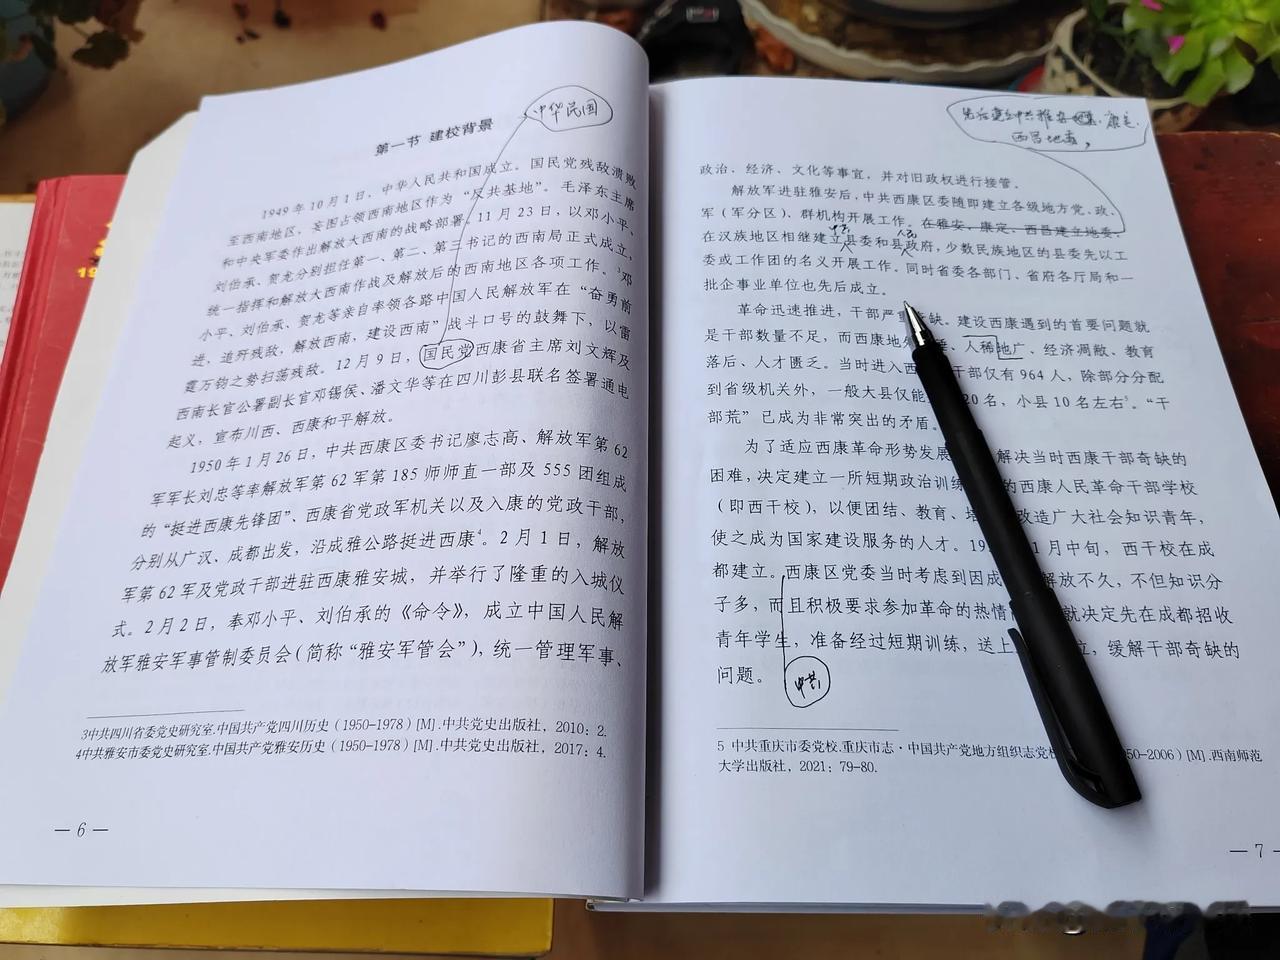 第一节 建校背景
中华民国
1949年10月1日，中华人民共和国成立。国民党残敌溃败
至西南地区，妄图占领西南地区作为“反共基地”。毛泽东主席
和中央军委作出解放大西南的战略部署，11月23日，以邓小平、
刘伯承、贺龙分别担任第一、第二、第三书记的西南局正式成立，
统一指挥和解放大西南作战及解放后的西南地区各项工作。³邓
小平、刘伯承、贺龙等亲自率领各路中国人民解放军在“奋勇前
进，追歼残敌，解放西南，建设西南”战斗口号的鼓舞下，以雷
霆万钧之势扫荡残敌。12月9日，国民党西康省主席刘文辉及
西南长官公署副长官邓锡侯、潘文华等在四川彭县联名签署通电
起义，宣布川西、西康和平解放。
1950年1月26日，中共西康区委书记廖志高、解放军第62
军军长刘忠等率解放军第62军第185师师直一部及555团组成
的“挺进西康先锋团”、西康省党政军机关以及入康的党政干部，
分别从广汉、成都出发，沿成雅公路挺进西康⁴。2月1日，解放
军第62军及党政干部进驻西康雅安城，并举行了隆重的入城仪
式。2月2日，奉邓小平、刘伯承的《命令》，成立中国人民解
放军雅安军事管制委员会(简称“雅安军管会”)，统一管理军事、
3中共四川省委党史研究室.中国共产党四川历史（1950-1978）[M].中共党史出版社，2010：2.
4中共雅安市委党史研究室.中国共产党雅安历史（1950-1978）[M].中共党史出版社，2017：4.
— 6 —
先后建立中共雅安、康定、
西昌地委，
政治、经济、文化等事宜，并对旧政权进行接管。
解放军进驻雅安后，中共西康区委随即建立各级地方党、政、
军（军分区）、群机构开展工作。在雅安、康定、西昌建立地委，
中共
人民
在汉族地区相继建立县委和县政府，少数民族地区的县委先以工
委或工作团的名义开展工作。同时省委各部门、省府各厅局和一
批企事业单位也先后成立。
革命迅速推进，干部严重奇缺。建设西康遇到的首要问题就
是干部数量不足，而西康地处 、人稀地广、经济凋敝、教育
落后、人才匮乏。当时进入西 干部仅有964人，除部分分配
到省级机关外，一般大县仅能 20名，小县10名左右⁵。“干
部荒”已成为非常突出的矛盾。
为了适应西康革命形势发展 解决当时西康干部奇缺的
困难，决定建立一所短期政治训练 的西康人民革命干部学校
（即西干校），以便团结、教育、培 改造广大社会知识青年，
使之成为国家建设服务的人才。19 1月中旬，西干校在成
都建立。西康区党委当时考虑到因成 解放不久，不但知识分
子多，而且积极要求参加革命的热情 就决定先在成都招收
青年学生，准备经过短期训练，送上 ，缓解干部奇缺的
问题。
中共
5 中共重庆市委党校.重庆市志·中国共产党地方组织志党校 50-2006）[M].西南师范
大学出版社，2021：79-80.
— 7 —